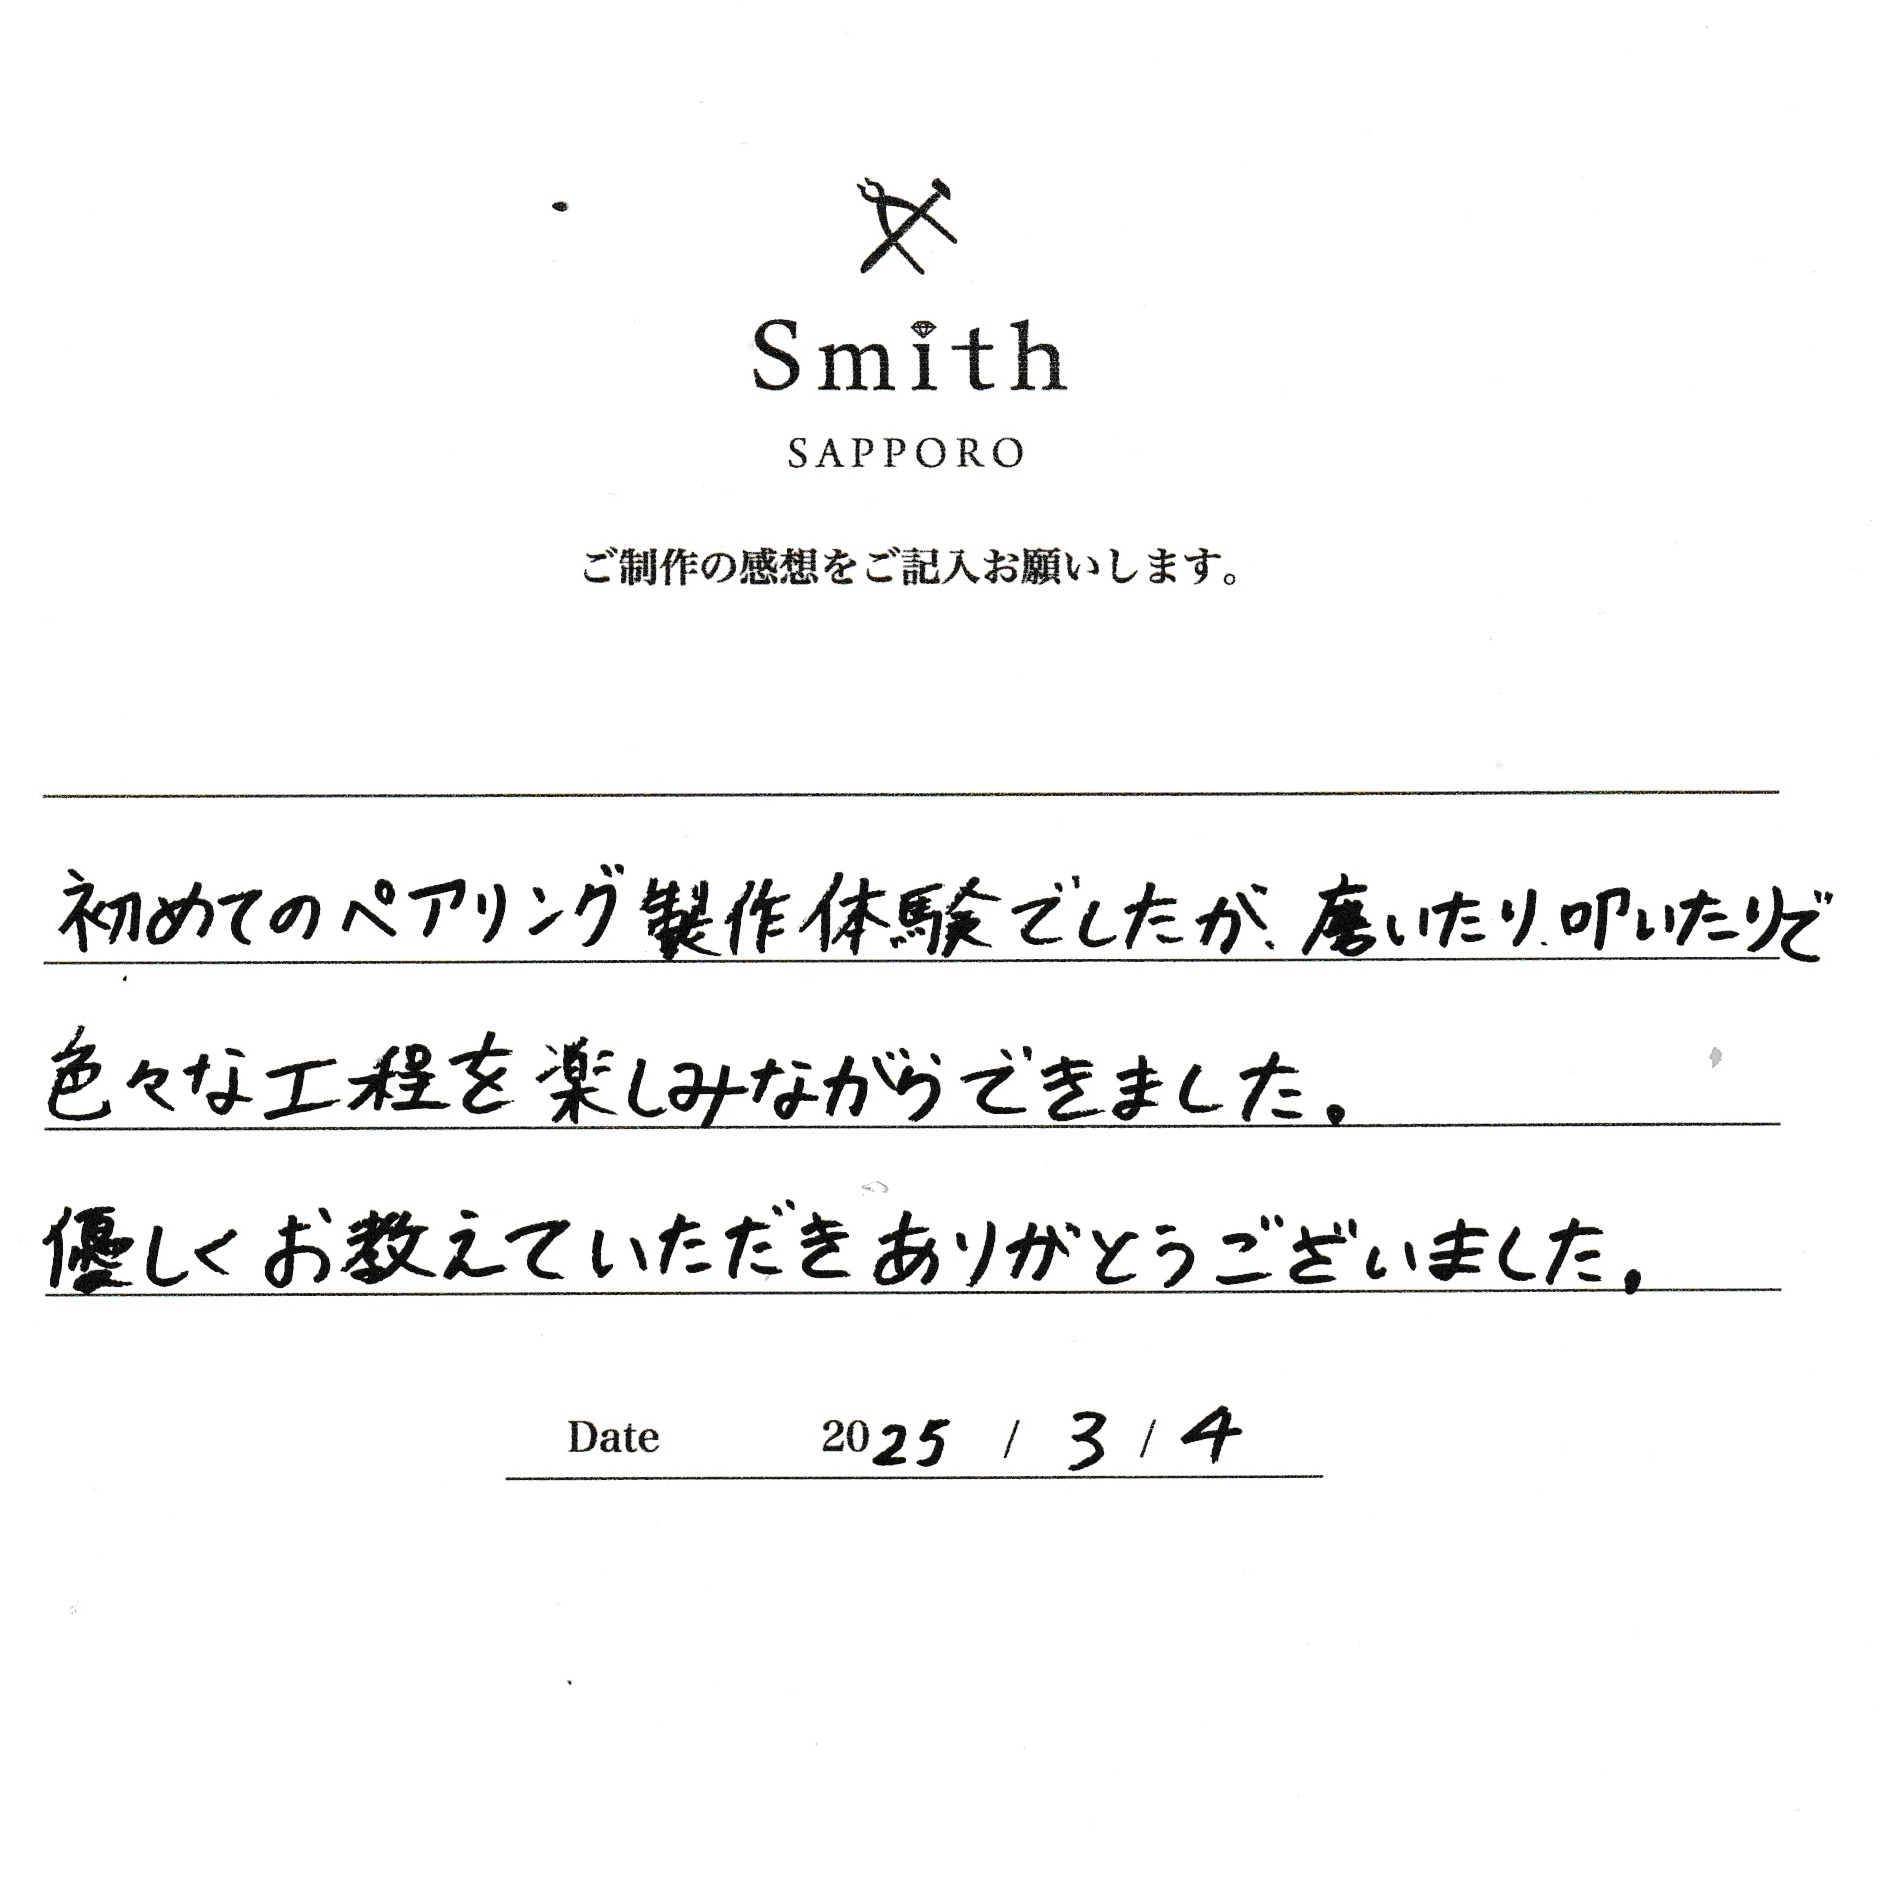 Smith
SAPPORO
ご制作の感想をご記入お願いします。
初めてのペアリング製作体験でしたが、磨いたり、叩いたりで
色々な工程を楽しみながらできました。
優しくお教えていただきありがとうございました。
Date 2025 / 3 / 4